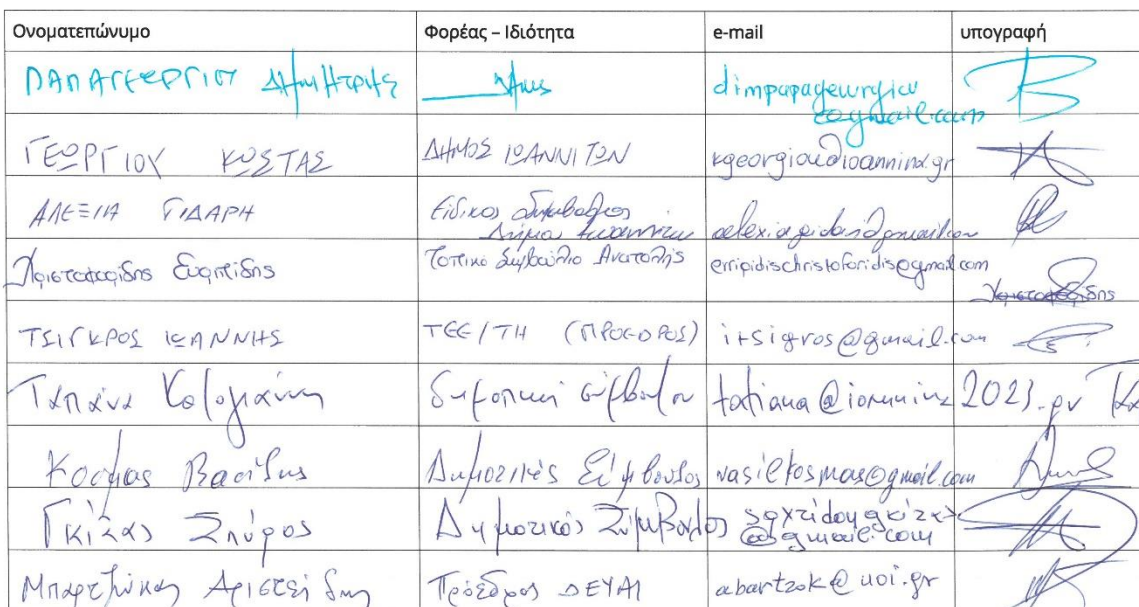 Ονοματεπώνυμο Φορέας – Ιδιότητα e-mail υπογραφή
ΠΑΠΑΓΕΩΡΓΙΟΥ Δημήτρης dimpapageorgiou
@gmail.com
ΓΕΩΡΓΙΟΥ ΚΩΣΤΑΣ ΔΗΜΟΣ ΙΩΑΝΝΙΤΩΝ kgeorgiou@ioannina.gr
ΑΛΕΞΙΑ ΓΙΔΑΡΗ Ειδικος Σύμβουλος
Δήμου Ιωαννιτών alexiagidari@gmail.com
Χριστοφορίδης Ευριπίδης Τοπικο Συμβούλιο Ανατολής erripidischristoforidis@gmail.com
Χριστοφορίδης
ΤΣΙΓΚΡΟΣ ΙΩΑΝΝΗΣ ΤΕΕ/ΤΗ (ΠΡΟΕΔΡΟΣ) itsigros@gmail.com
Τατιάνα Καλογιάννη δημοτική σύμβουλος tatiana@ioannina2023.gr
Κοσμας Βασίλης Δημοτικός Σύμβουλος vasilkosmas@gmail.com
Γκίζας Σπύρος Δημοτικός Σύμβουλος
@gmail.com
Μπαρτζώκας Αριστείδης Πρόεδρος ΔΕΥΑΙ abartzok@uoi.gr